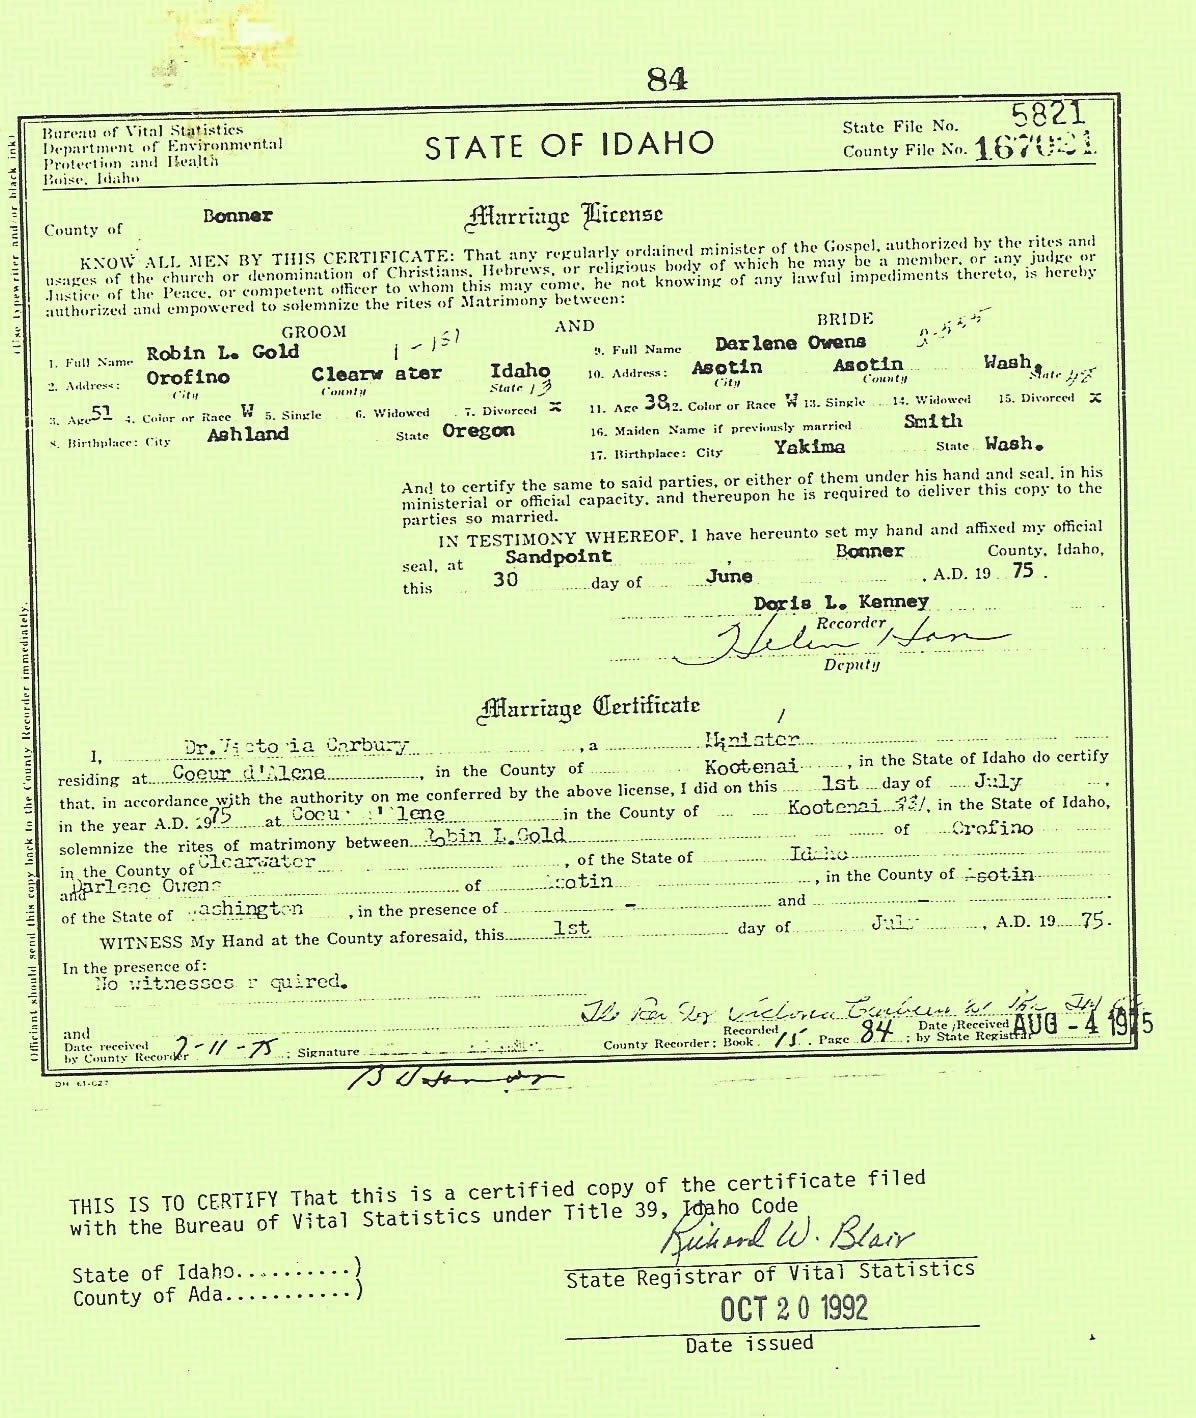 84
Bureau of Vital Statistics
Department of Environmental
Protection and Health
Boise, Idaho
STATE OF IDAHO
State File No. 5821
County File No. 167021
County of Bonner
Marriage License
KNOW ALL MEN BY THIS CERTIFICATE: That any regularly ordained minister of the Gospel, authorized by the rites and
usages of the church or denomination of Christians, Hebrews, or religious body of which he may be a member, or any judge or
Justice of the Peace, or competent officer to whom this may come, he not knowing of any lawful impediments thereto, is hereby
authorized and empowered to solemnize the rites of Matrimony between:
GROOM AND BRIDE
1. Full Name Robin L. Gold 1-151 9. Full Name Darlene Owens
2. Address: Orofino Clearw ater Idaho 10. Address: Asotin Asotin Wash.
City County State 13 City County State 48
3. Age 51 4. Color or Race W 5. Single 6. Widowed 7. Divorced x 11. Age 38 12. Color or Race W 13. Single 14. Widowed 15. Divorced x
8. Birthplace: City Ashland State Oregon 16. Maiden Name if previously married Smith
17. Birthplace: City Yakima State Wash.
And to certify the same to said parties, or either of them under his hand and seal, in his
ministerial or official capacity, and thereupon he is required to deliver this copy to the
parties so married.
IN TESTIMONY WHEREOF, I have hereunto set my hand and affixed my official
seal, at Sandpoint, Bonner County, Idaho,
this 30 day of June, A.D. 19 75.
Doris L. Kenney
Recorder
Helen
Deputy
Marriage Certificate
I, Dr. Victoria Carbury, a Minister
residing at Coeur d'Alene, in the County of Kootenai, in the State of Idaho do certify
that, in accordance with the authority on me conferred by the above license, I did on this 1st day of July,
in the year A.D. 1975 at Coeur d'Alene in the County of Kootenai, in the State of Idaho,
solemnize the rites of matrimony between Robin L. Gold of Orofino
in the County of Clearwater, of the State of Idaho
and Darlene Owens of Asotin, in the County of Asotin
of the State of Washington, in the presence of - and -
WITNESS My Hand at the County aforesaid, this 1st day of July, A.D. 19 75.
In the presence of:
No witnesses r quired.
The Rev Dr Victoria
and
Date received
by County Recorder 7-11-75; Signature
Recorded
County Recorder: Book 15. Page 84; Date Received
by State Registrar AUG - 4 1975
DH 61-027
(Use typewriter and/or black ink)
Officiant should send this copy back to the County Recorder immediately.
THIS IS TO CERTIFY That this is a certified copy of the certificate filed
with the Bureau of Vital Statistics under Title 39, Idaho Code
Richard W. Blair
State of Idaho..........)
County of Ada...........)
State Registrar of Vital Statistics
OCT 20 1992
Date issued